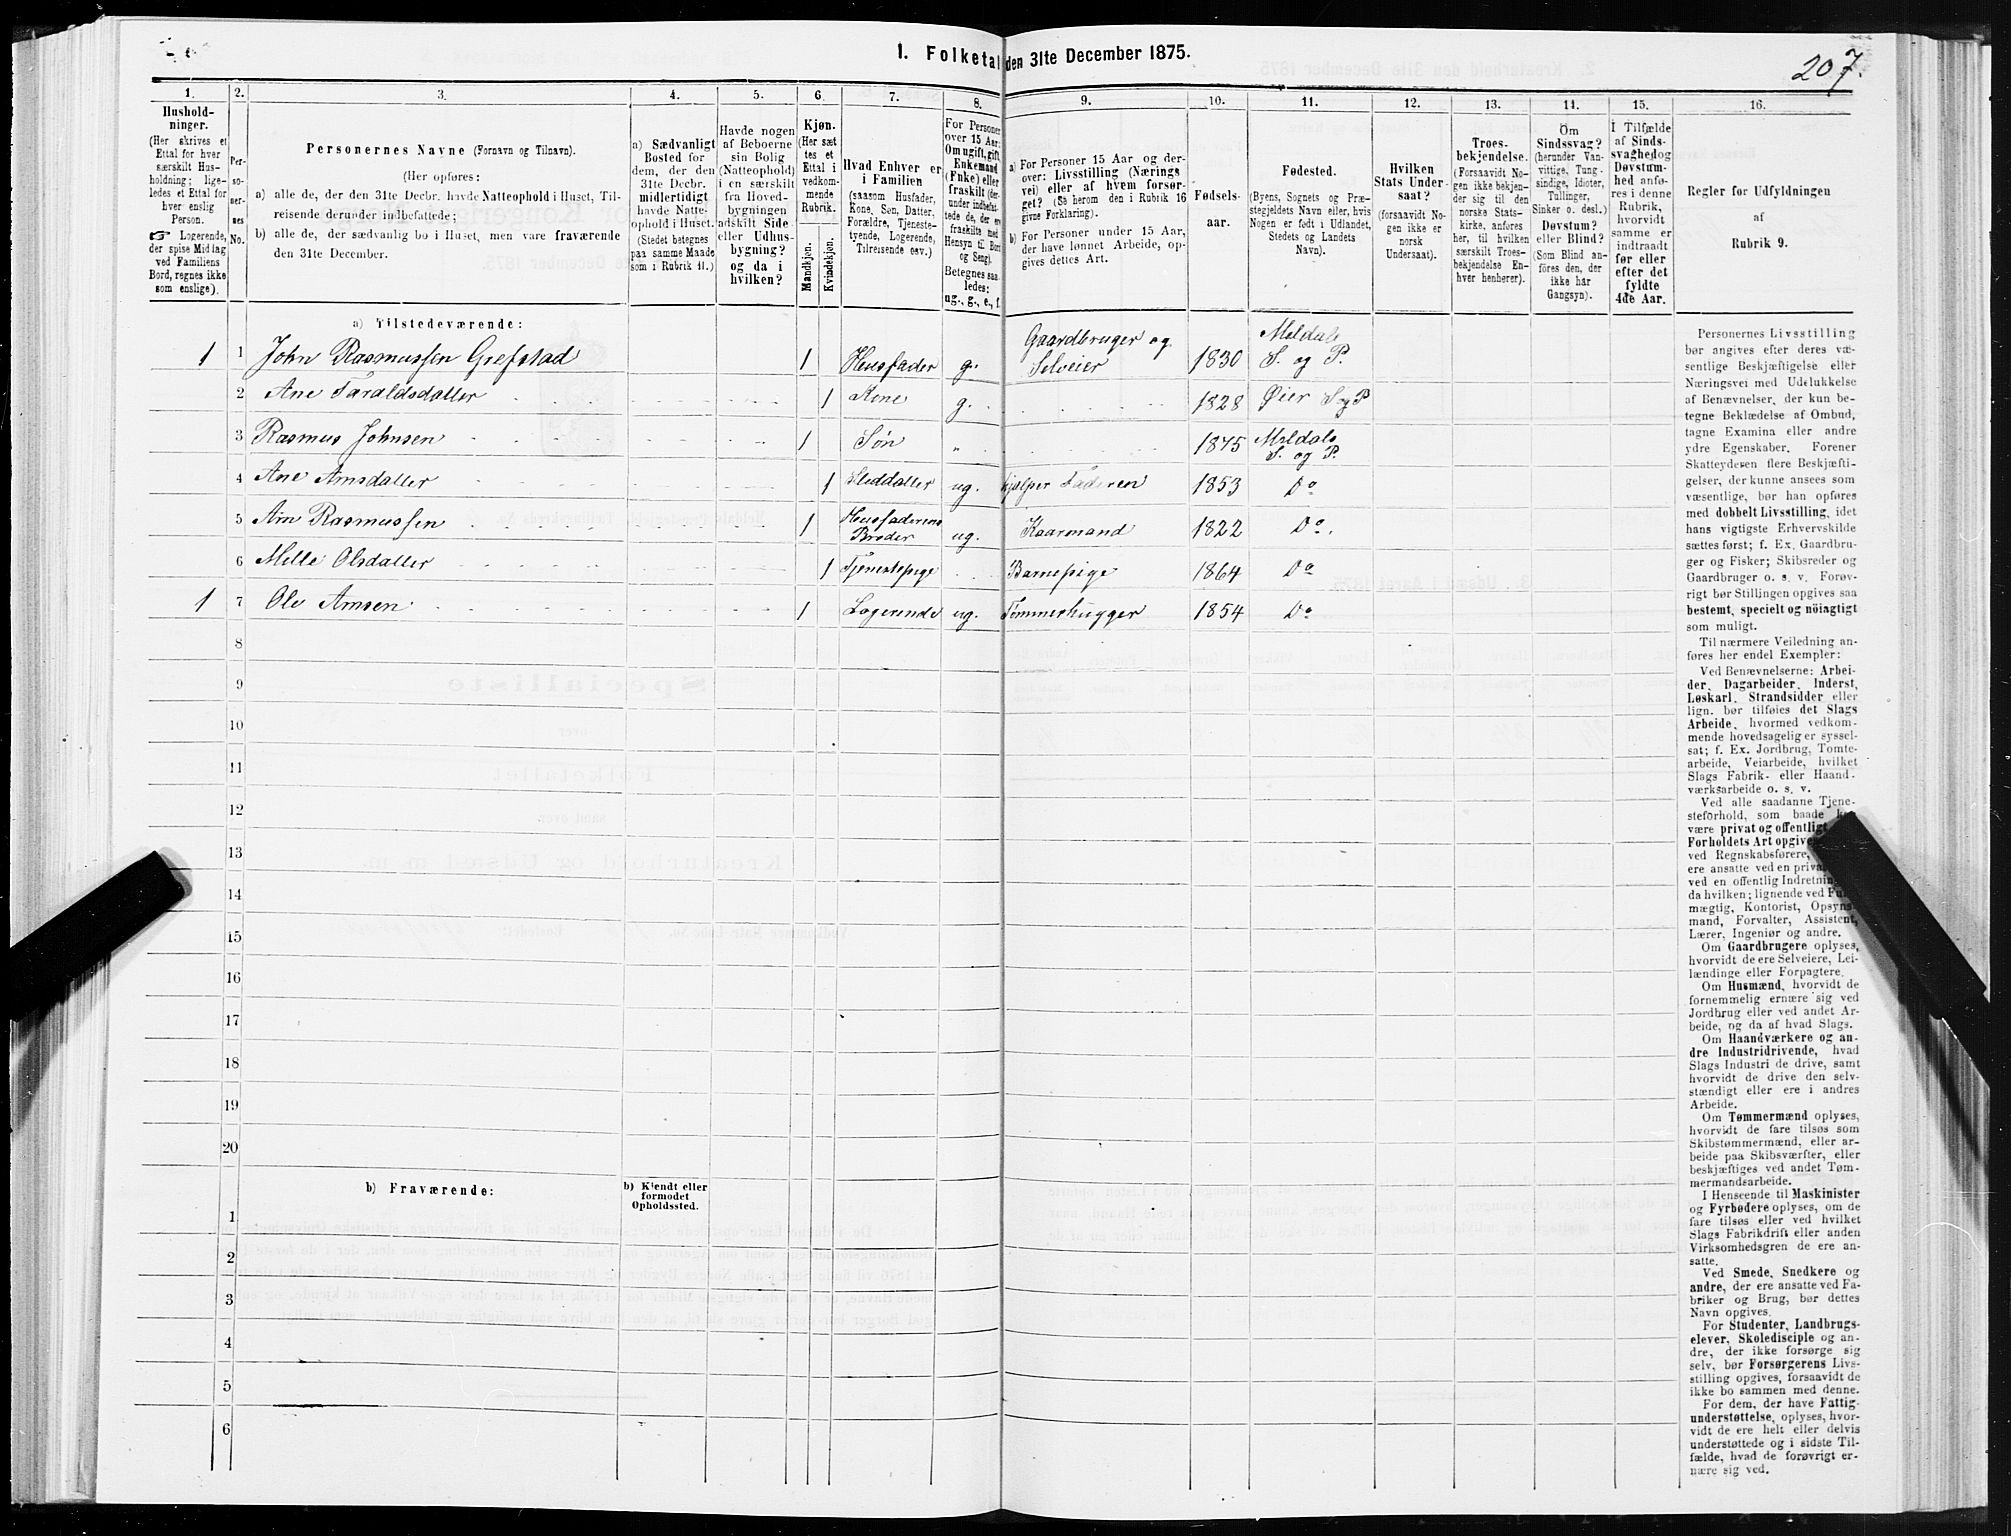 1. Folketal den 31te December 1875.
207.
1. 2. 3. 4. 5. 6. 7. 8. 9. 10. 11. 12. 13. 14. 15. 16.
Hushold-
ninger.
(Her skrives et
Ettal for hver
særskilt Hus-
holdning; lige-
ledes et Ettal for
hver enslig
Person.
☞ Logerende,
der spise Middag
ved Familiens
Bord, regnes ikke
som enslige).
Per-
so-
ner-
nes
No.
Personernes Navne (Fornavn og Tilnavn).
(Her opføres:
a) alle de, der den 31te Decbr. havde Natteophold i Huset, Til-
reisende derunder indbefattede;
b) alle de, der sædvanlig bo i Huset, men vare fraværende
den 31te December.
a) Sædvanligt
Bosted for
dem, der den
31te Decbr.
midlertidigt
havde Natte-
ophold i Huset.
(Stedet betegnes
paa samme Maade
som i Rubrik 11.)
Havde nogen
af Beboerne
sin Bolig
(Natteophold)
i en særskilt
fra Hoved-
bygningen
adskilt Side-
eller Udhus-
bygning?
og da i
hvilken?
Kjøn.
(Her sæt-
tes et
Ettal i
vedkom-
mende
Rubrik.
Mandkjøn.
Kvindekjøn.
Hvad Enhver er
i Familien
(saasom Husfader,
Kone, Søn, Datter,
Forældre, Tjeneste-
tyende, Logerende,
Tilreisende osv.)
For Personer
over 15 Aar:
Om ugift, gift,
Enkemand
(Enke) eller
fraskilt (der-
under indbefat-
tede de, der ere
fraskilte med
Hensyn til Bord
og Seng).
Betegnes saa-
ledes:
ug., g., e., f.
a) For Personer 15 Aar og der-
over: Livsstilling (Nærings-
vei) eller af hvem forsør-
get? (Se herom den i Rubrik 16
givne Forklaring).
b) For Personer under 15 Aar,
der have lønnet Arbeide, op-
gives dettes Art.
Fødsels-
aar.
Fødested.
(Byens, Sognets og Præ-
stegjeldets Navn eller, hvis
Nogen er født i Udlandet,
Stedets og Landets
Navn).
Hvilken
Stats Under-
saat?
(forsaavidt No-
gen ikke er
norsk
Undersaat).
Troes-
bekjendelse.
(Forsaavidt No-
gen ikke bekjen-
der sig til den
norske Stats-
kirke, anføres
her, til hvilken
særskilt Troes-
bekjendelse En-
hver henhører).
Om
Sindssvag?
(herunder Van-
vittige, Tung-
sindige, Idioter,
Tullinger,
Sinker o. desl.)
Døvstum?
eller Blind?
(Som Blind an-
føres den, der
ikke har
Gangsyn).
I Tilfælde
af Sinds-
svaghed og
Døvstum-
hed anfø-
res i denne
Rubrik,
hvorvidt
samme er
indtraadt
før eller
efter det
fyldte
4de Aar.
Regler for Udfyldningen
af
Rubrik 9.
a) Tilstedeværende:
1 1 John Rasmussen Grefstad 1 Husfader g. Gaardbruger og Selveier 1830 Meldals S. og P.
2 Ane Taraldsdatter 1 Kone g. 1828 Øier S og P
3 Rasmus Johnsen 1 Søn „ 1875 Meldals S. og P.
4 Ane Arnsdatter 1 Steddatter ug. hjælper Faderen 1853 Do
5 Arn Rasmussen 1 Husfaderens Broder ug. Kaarmand 1822 Do.
6 Mille Olsdatter 1 Tjenestepige Barnepige 1864 Do
1 7 Ole Arnsen 1 Logerende ug. Tømmerhugger 1854 Do
8
9
10
11
12
13
14
15
16
17
18
19
20
b) Fraværende:
b) Kjendt eller
formodet
Opholdssted.
1
2
3
4
5
6
Personernes Livsstilling
bør angives efter deres væ-
sentlige Beskjæftigelse eller
Næringsvei med Udelukkelse
af Benævnelser, der kun be-
tegne Beklædelse af Ombud,
tagne Examina eller andre
ydre Egenskaber. Forener
Skatteydesen flere Beskjæfti-
gelser, der kunne ansees som
væsentlige, bør han opføres
med dobbelt Livsstilling, idet
hans vigtigste Erhvervskilde
sættes først; f. Ex. Gaardbru-
ger og Fisker; Skibsreder og
Gaardbruger o. s. v. Forøv-
rigt bør Stillingen opgives saa
bestemt, specielt og nöiagtigt
som muligt.
Til nærmere Veiledning an-
føres her endel Exempler:
Ved Benævnelserne: Arbei-
der, Dagarbeider, Inderst,
Løskarl, Strandsidder eller
lign. bør tilføies det Slags
Arbeide, hvormed vedkom-
mende hovedsagelig er syssel-
sat; f. Ex. Jordbrug, Tomte-
arbeide, Veiarbeide, hvilket
Slags Fabrik- eller Haand-
værksarbeide o. s. v.
Ved alle saadanne Tjene-
steforhold, som baade
være privat og offentligt,
Forholdets Art opgives,
ved Regnskabsførere,
ere ansatte ved en privat
ved en offentlig Indretning
da hvilken; lignende ved
mægtig, Kontorist, Opsyns-
mand, Forvalter, Assistent,
Lærer, Ingeniør og andre.
Om Gaardbrugere oplyses,
hvorvidt de ere Selveiere, Lei-
lændinge eller Forpagtere.
Om Husmænd, hvorvidt de
fornemmelig ernære sig ved
Jordbrug eller ved andet Ar-
beide, og da af hvad Slags.
Om Haandværkere og an-
dre Industridrivende, hvad
Slags Industri de drive, samt
hvorvidt de drive den selv-
stændigt eller ere i andres
Arbeide.
Om Tømmermænd oplyses,
hvorvidt de fare tilsøs som
Skibstømmermænd, eller ar-
beide paa Skibsværfter, eller
beskjæftiges ved andet Tøm-
mermandsarbeide.
I Henseende til Maskinister
og Fyrbødere oplyses, om de
fare tilsøs eller ved hvilket
Slags Fabrikdrift eller anden
Virksomhedsgren de ere an-
satte.
Ved Smede, Snedkere og
andre, der ere ansatte ved Fa-
briker og Brug, bør dettes
Navn opgives.
For Studenter, Landbrugs-
elever, Skoledisciple og an-
dre, der ikke forsørge sig
selv, bør Forsørgerens Livs-
stilling opgives, forsaavidt de
ikke bo sammen med denne.
For dem, der have Fattig-
understøttelse, oplyses, hvor-
vidt de ere helt eller delvis
understøttede og i sidste Til-
fælde, hvad de forøvrigt er-
nære sig ved.